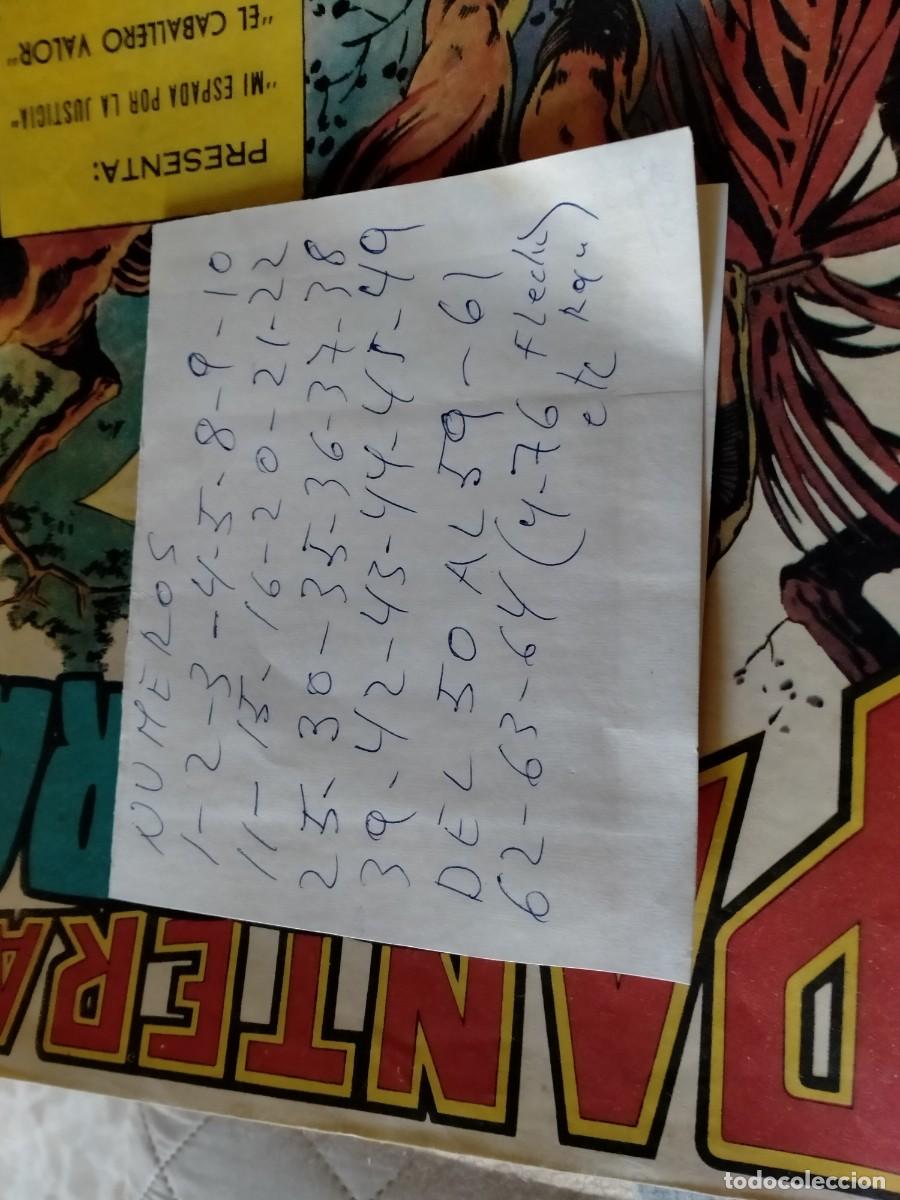 "EL CABALLERO VALOR"
"MI ESPADA POR LA JUSTICIA"
PRESENTA:
NUMEROS
1-2-3-4-5-8-9-10
11-15-16-20-21-22
25-30-35-36-37-38
39-42-43-44-45-49
DEL 50 AL 59-61
62-63-64 (4-76
etc
PANTERA
todocoleccion